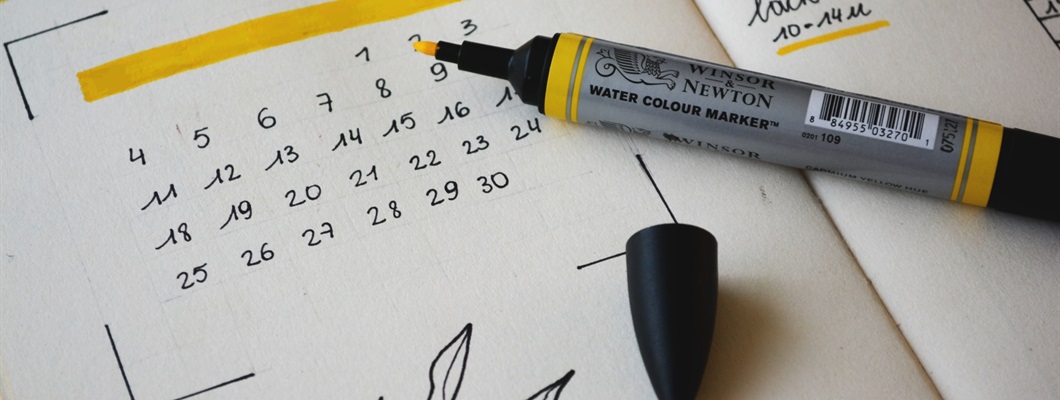 1 2 3
4 5 6 7 8 9
11 12 13 14 15 16
18 19 20 21 22 23 24
25 26 27 28 29 30
10-14u
WINSOR
&
NEWTON
WATER COLOUR MARKER™
8 84955 03270 1
0201 109
WINSOR
CADMIUM YELLOW HUE